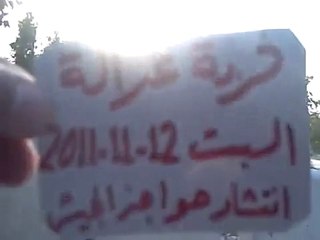 قرية غزالة
السبت 12-11-2011
انتشار حواجز الجيش